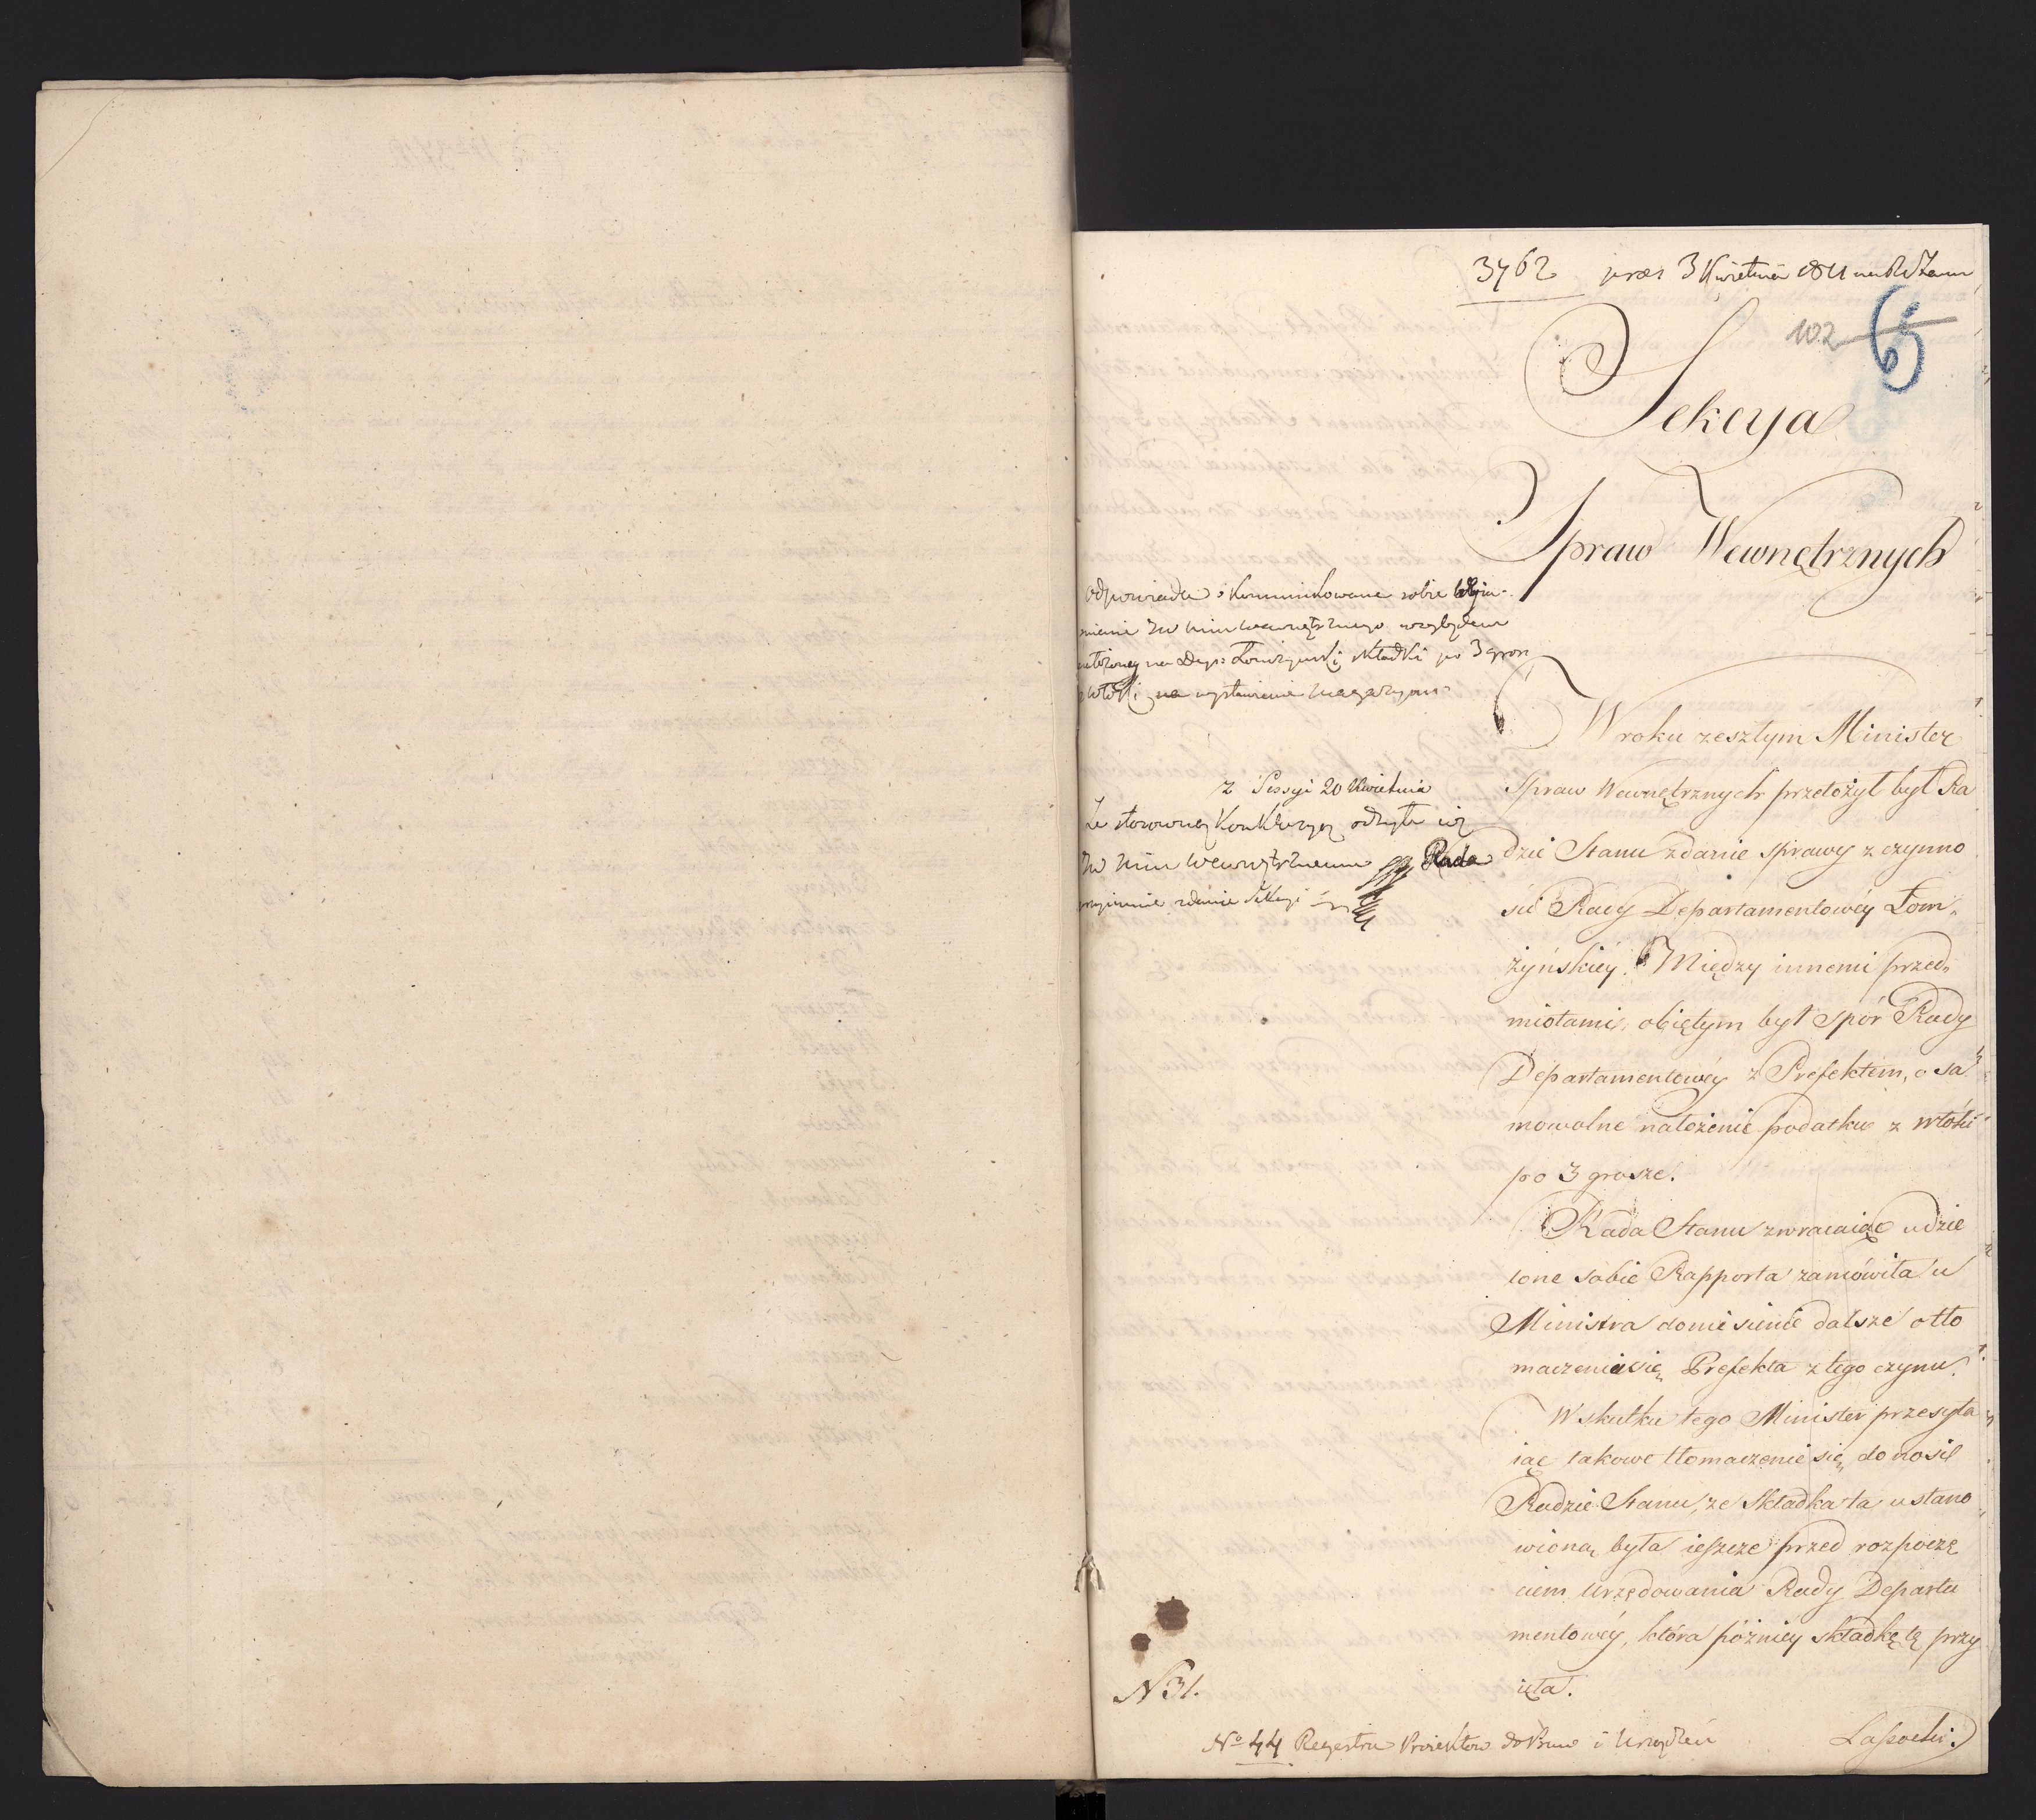 3762 prez 3 Kwietnia 1811
102 65
Sekcya
Spraw Wewnętrznych
odpowiada Kommunikowane sobie
mienie Wewnętrznego względem
Łomżyński składki po 3 grosz
włóki na wystawienie Magazynu
z Sessyi 20 Kwietnia
Ze stosowney Konkluzyą odsyła się
Wewnętrznemu Rada
przyimuie zdanie Sekcyi
W roku zeszłym Minister
Spraw Wewnętrznych przełożył był Ra
dzie Stanu zdanie sprawy z czynno
ści Rady Departamentowéy Łom„
żyńskiéy. Między innemi przed„
miotami, obiętym był Spór Rady
Departamentowéy z Prefektem, o sa
mowolne nałożenie podatku z włóki
po 3 grosze.
Rada Stanu zwracaiąc udzie
lone sobie Rapporta zamówiła u
Ministra doniesienie dalsze o tło
maczenia się Prefekta z tego czynu.
W skutku tego Minister przesyła
iąc takowe tłomaczenie się, donosił
Radzie Stanu, że Składka ta ustano
wioną była ieszcze przed rozpoczę
ciem Urzędowania Rady Departa
mentowéy, która późniéy składkę tę przy
ięła.
N 31.
No 44 Regestru Proiektow do Praw i Urządzeń
Lasocki.